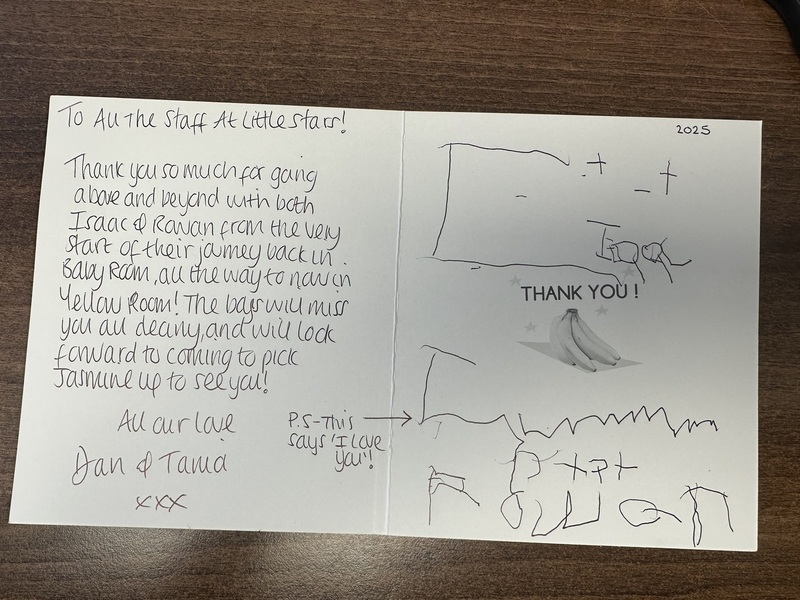 To All The Staff At Little Stars!
Thank you so much for going
above and beyond with both
Isaac & Rowan from the very
start of their journey back in
Baby Room, all the way to now in
Yellow Room! The boys will miss
you all dearly, and will look
forward to coming to pick
Jasmine up to see you!
All our love
Dan & Tania
xxx
P.S - This
says 'I love
you'!
2025
THANK YOU !